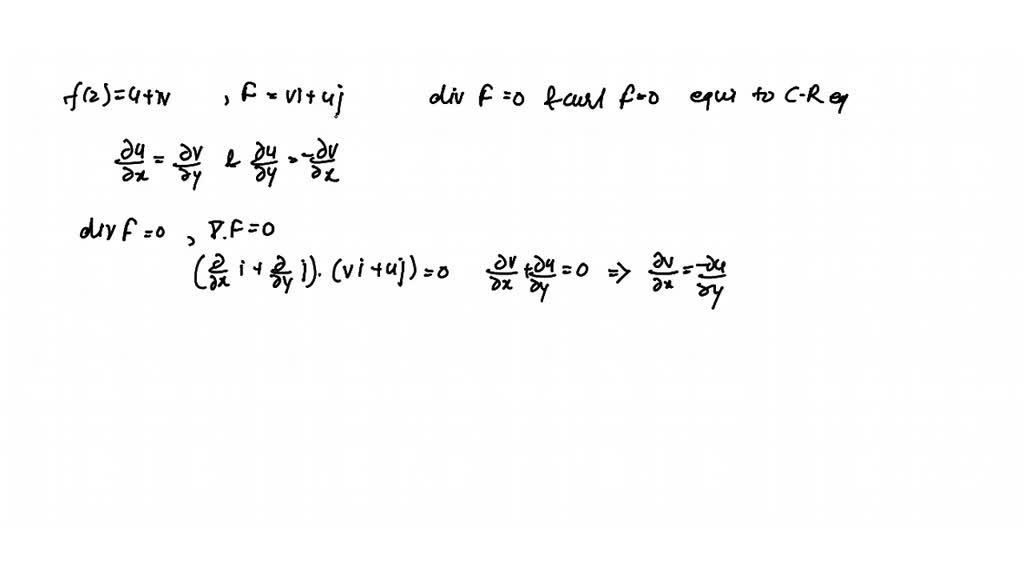 f(z)=u+iv , F = vi+uj div F =0 & curl F=0 equi to C-R eq
∂u/∂x = ∂v/∂y & ∂u/∂y = -∂v/∂x
div F =0 , ∇.F=0
(∂/∂x i + ∂/∂y j). (vi+uj)=0 ∂v/∂x + ∂u/∂y = 0 => ∂v/∂x = -∂u/∂y